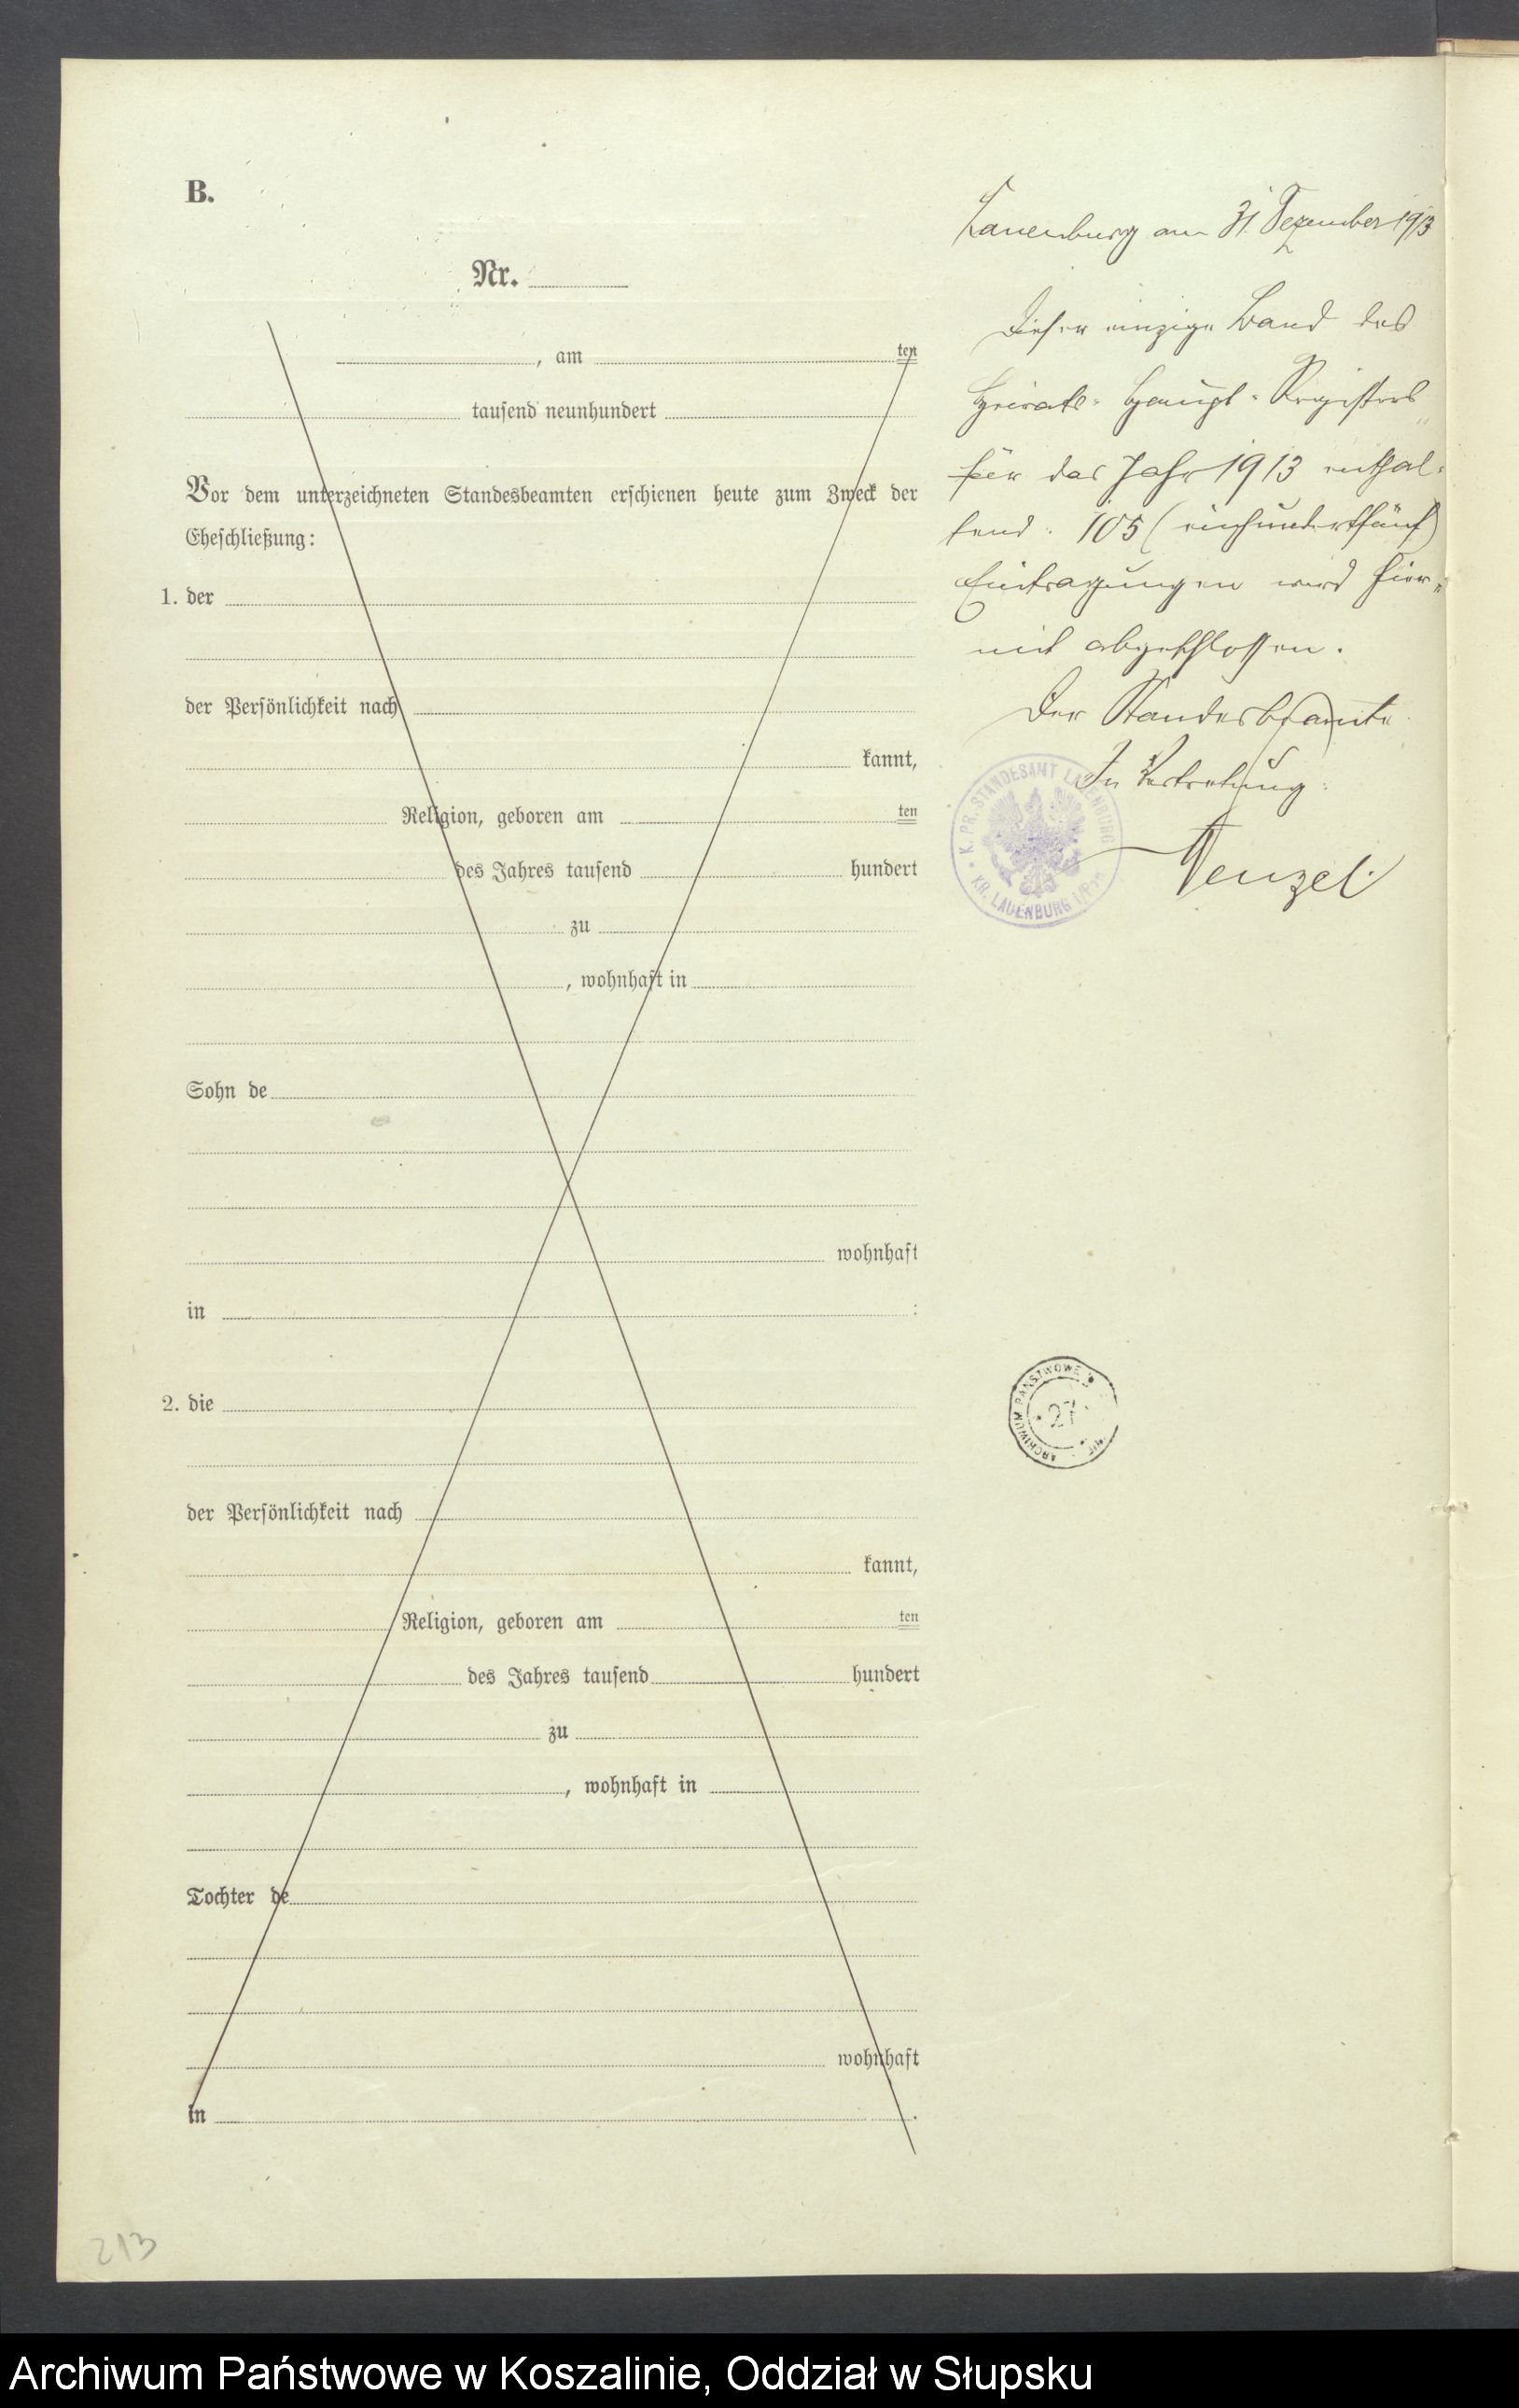 B.
Nr.
, am ten
tausend neunhundert
Vor dem unterzeichneten Standesbeamten erschienen heute zum Zweck der
Eheschließung:
1. der
der Persönlichkeit nach
kannt,
Religion, geboren am ten
des Jahres tausend hundert
zu
, wohnhaft in
Sohn de
wohnhaft
in :
2. die
der Persönlichkeit nach
kannt,
Religion, geboren am ten
des Jahres tausend hundert
zu
, wohnhaft in
Tochter de
wohnhaft
in .
213
Lauenburg am 31. Dezember 1913
Dieser einzige Band des
Heirats-Haupt-Registers
für das Jahr 1913 enthal-
tend: 105 (einhundertfünf)
Eintragungen wird hier-
mit abgeschlossen.
Der Standesbeamte
In Vertretung:
Wenzel
K. PR. STANDESAMT LAUENBURG
KR. LAUENBURG i/Pom
ARCHIWUM PAŃSTWOWE
27
Archiwum Państwowe w Koszalinie, Oddział w Słupsku